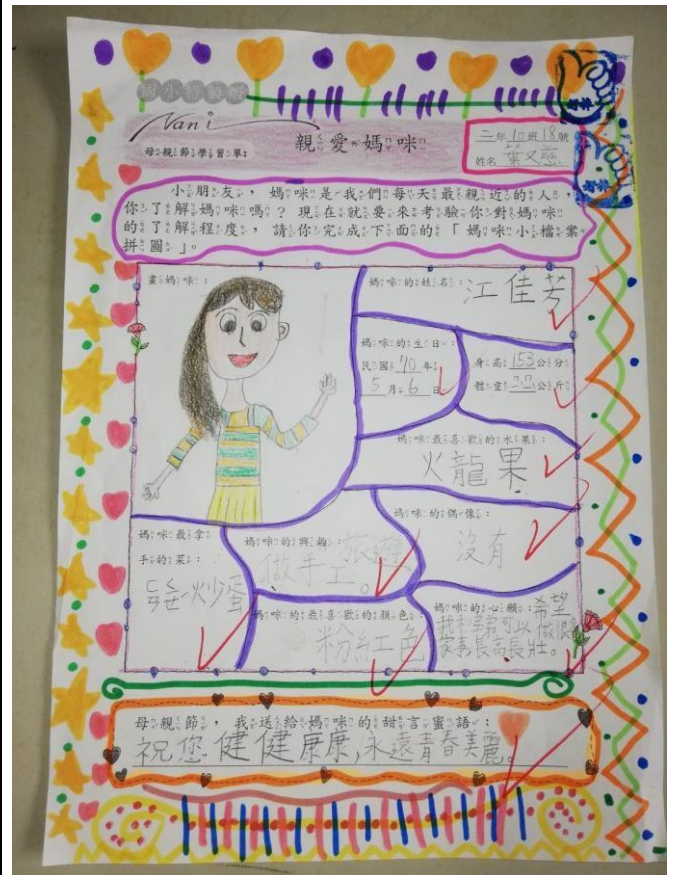 國小行動派
Nani
母親節學習單
親愛媽咪
二年10班18號
姓名 葉又慈
小朋友，媽咪是我們每天最親近的人，
你了解媽咪嗎？現在就要來考驗你對媽咪
的了解程度，請你完成下面的「媽咪小檔案
拼圖」。
畫媽咪：
媽咪的姓名：江佳芳
媽咪的生日：
民國70年
5月6日
身高153公分
體重??公斤
媽咪最喜歡的水果：
火龍果
媽咪最拿
手的菜：
ㄢ炒蛋
媽咪的興趣：
做手工。
媽咪的偶像：
沒有
媽咪的最喜歡的顏色：
粉紅色
媽咪的心願：希望
我和弟弟可以做很多
家事長高長壯。
母親節，我送給媽咪的甜言蜜語：
祝您健健康康，永遠青春美麗。